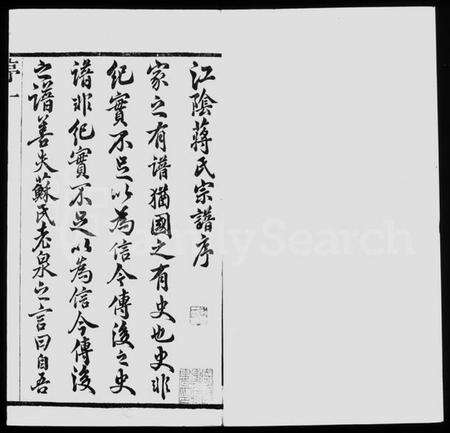 江陰蔣氏宗譜序
家之有譜猶國之有史也史非
紀實不足以為信今傳後之史
譜非紀實不足以為信今傳後
之譜善夫蘇氏老泉之言曰自吾
FamilySearch